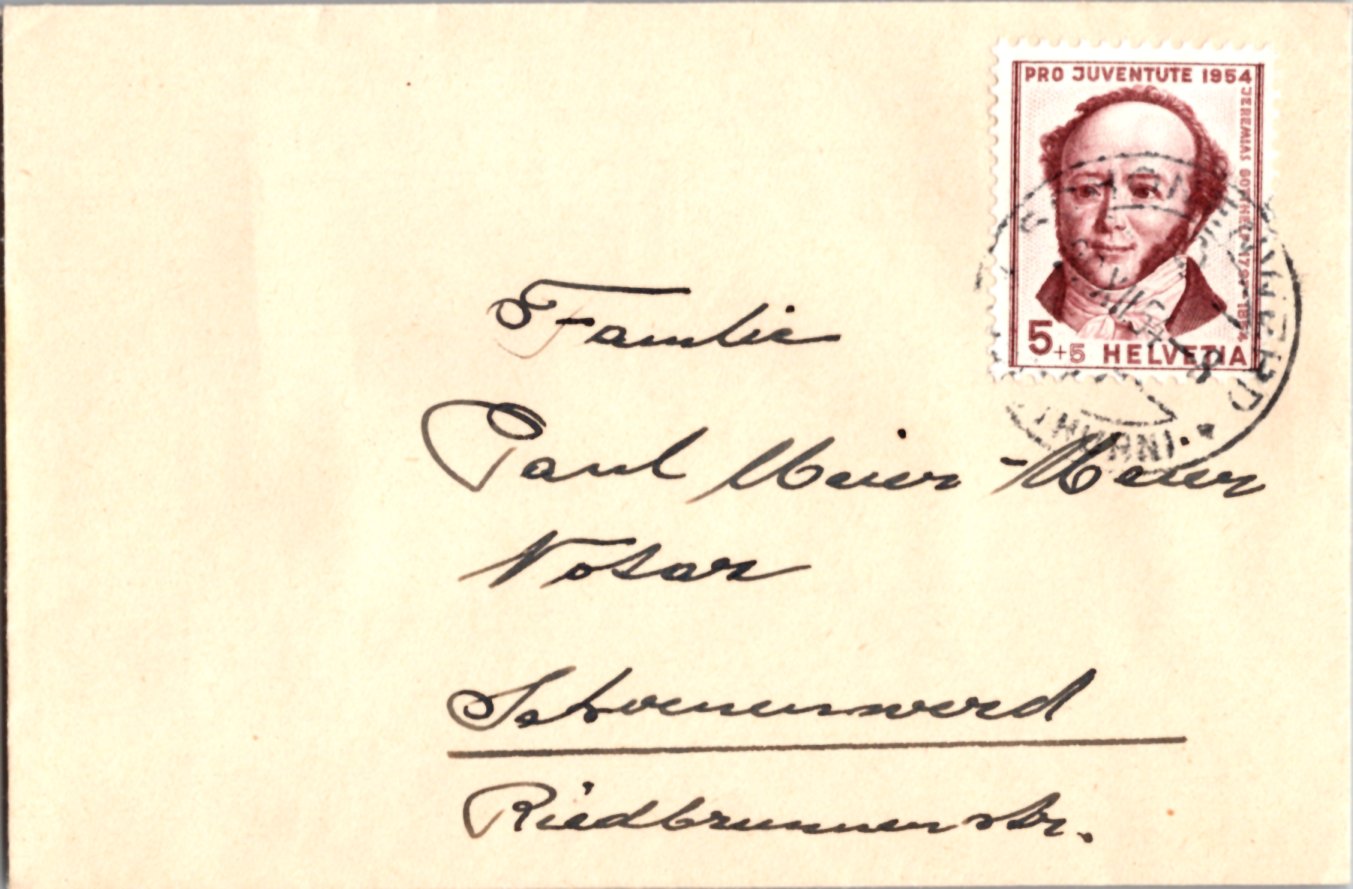 PRO JUVENTUTE 1954
JEREMIAS GOTTHELF 1797-1854
5+5 HELVETIA
Familie
Paul Meier-Meier
Notar
Schoenenwerd
Riedbrunnenstr.